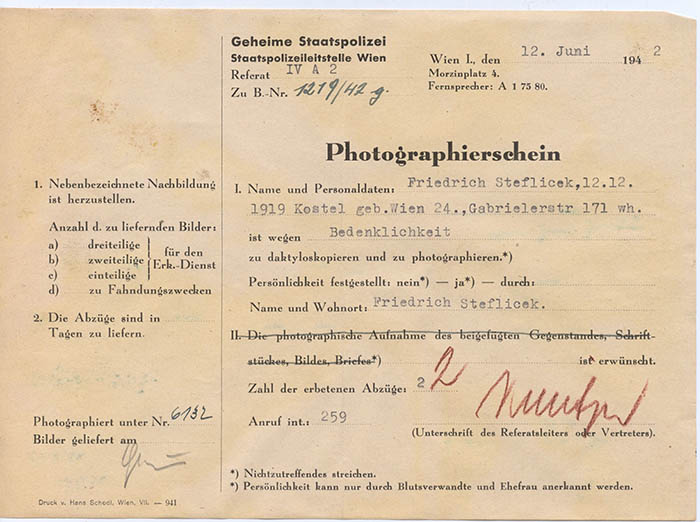 Geheime Staatspolizei
Staatspolizeileitstelle Wien
Referat IV A 2
Zu B.-Nr. 1219/42 g.
Wien I., den 12. Juni 1942
Morzinplatz 4.
Fernsprecher: A 1 75 80.
Photographierschein
1. Nebenbezeichnete Nachbildung
ist herzustellen.
Anzahl d. zu liefernden Bilder:
a) dreiteilige
b) zweiteilige
c) einteilige
für den
Erk.-Dienst
d) zu Fahndungszwecken
2. Die Abzüge sind in
Tagen zu liefern.
Photographiert unter Nr. 6132
Bilder geliefert am
Druck v. Hans Schedl, Wien, VII. — 941
I. Name und Personaldaten: Friedrich Steflicek,12.12.
1919 Kostel geb.Wien 24.,Gabrielerstr 171 wh.
ist wegen Bedenklichkeit
zu daktyloskopieren und zu photographieren.*)
Persönlichkeit festgestellt: nein*) — ja*) — durch:
Name und Wohnort: Friedrich Steflicek.
II. Die photographische Aufnahme des beigefügten Gegenstandes, Schrift-
stückes, Bildes, Briefes*) ist erwünscht.
Zahl der erbetenen Abzüge: 2 2
Anruf int.: 259
(Unterschrift des Referatsleiters oder Vertreters).
*) Nichtzutreffendes streichen.
*) Persönlichkeit kann nur durch Blutsverwandte und Ehefrau anerkannt werden.